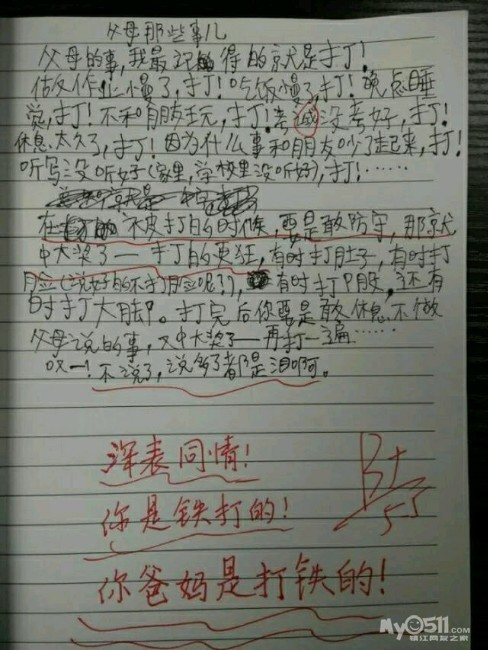 父母那些事儿
父母的事，我最记得的就是打！
做作业慢了，打！吃饭慢了，打！晚点睡
觉，打！不和朋友玩，打！考试没考好，打！
休息太久了，打！因为什么事和朋友吵了起来，打！
听写没听好（家里，学校里没听好），打！……
在 不皮打的时候，要是敢防守，那就
中大奖了——打的更狂，有时打肚子，有时打
脸（说好的不打脸呢！），有时打屁股，还有
时打大脚。打完后你要是敢休息，不做
父母说的事，又中大奖了——再打一遍……
哎——！不说了，说多了都是泪啊。
深表同情！
你是铁打的！
你爸妈是打铁的！
B+
My0511.com
镇江网友之家